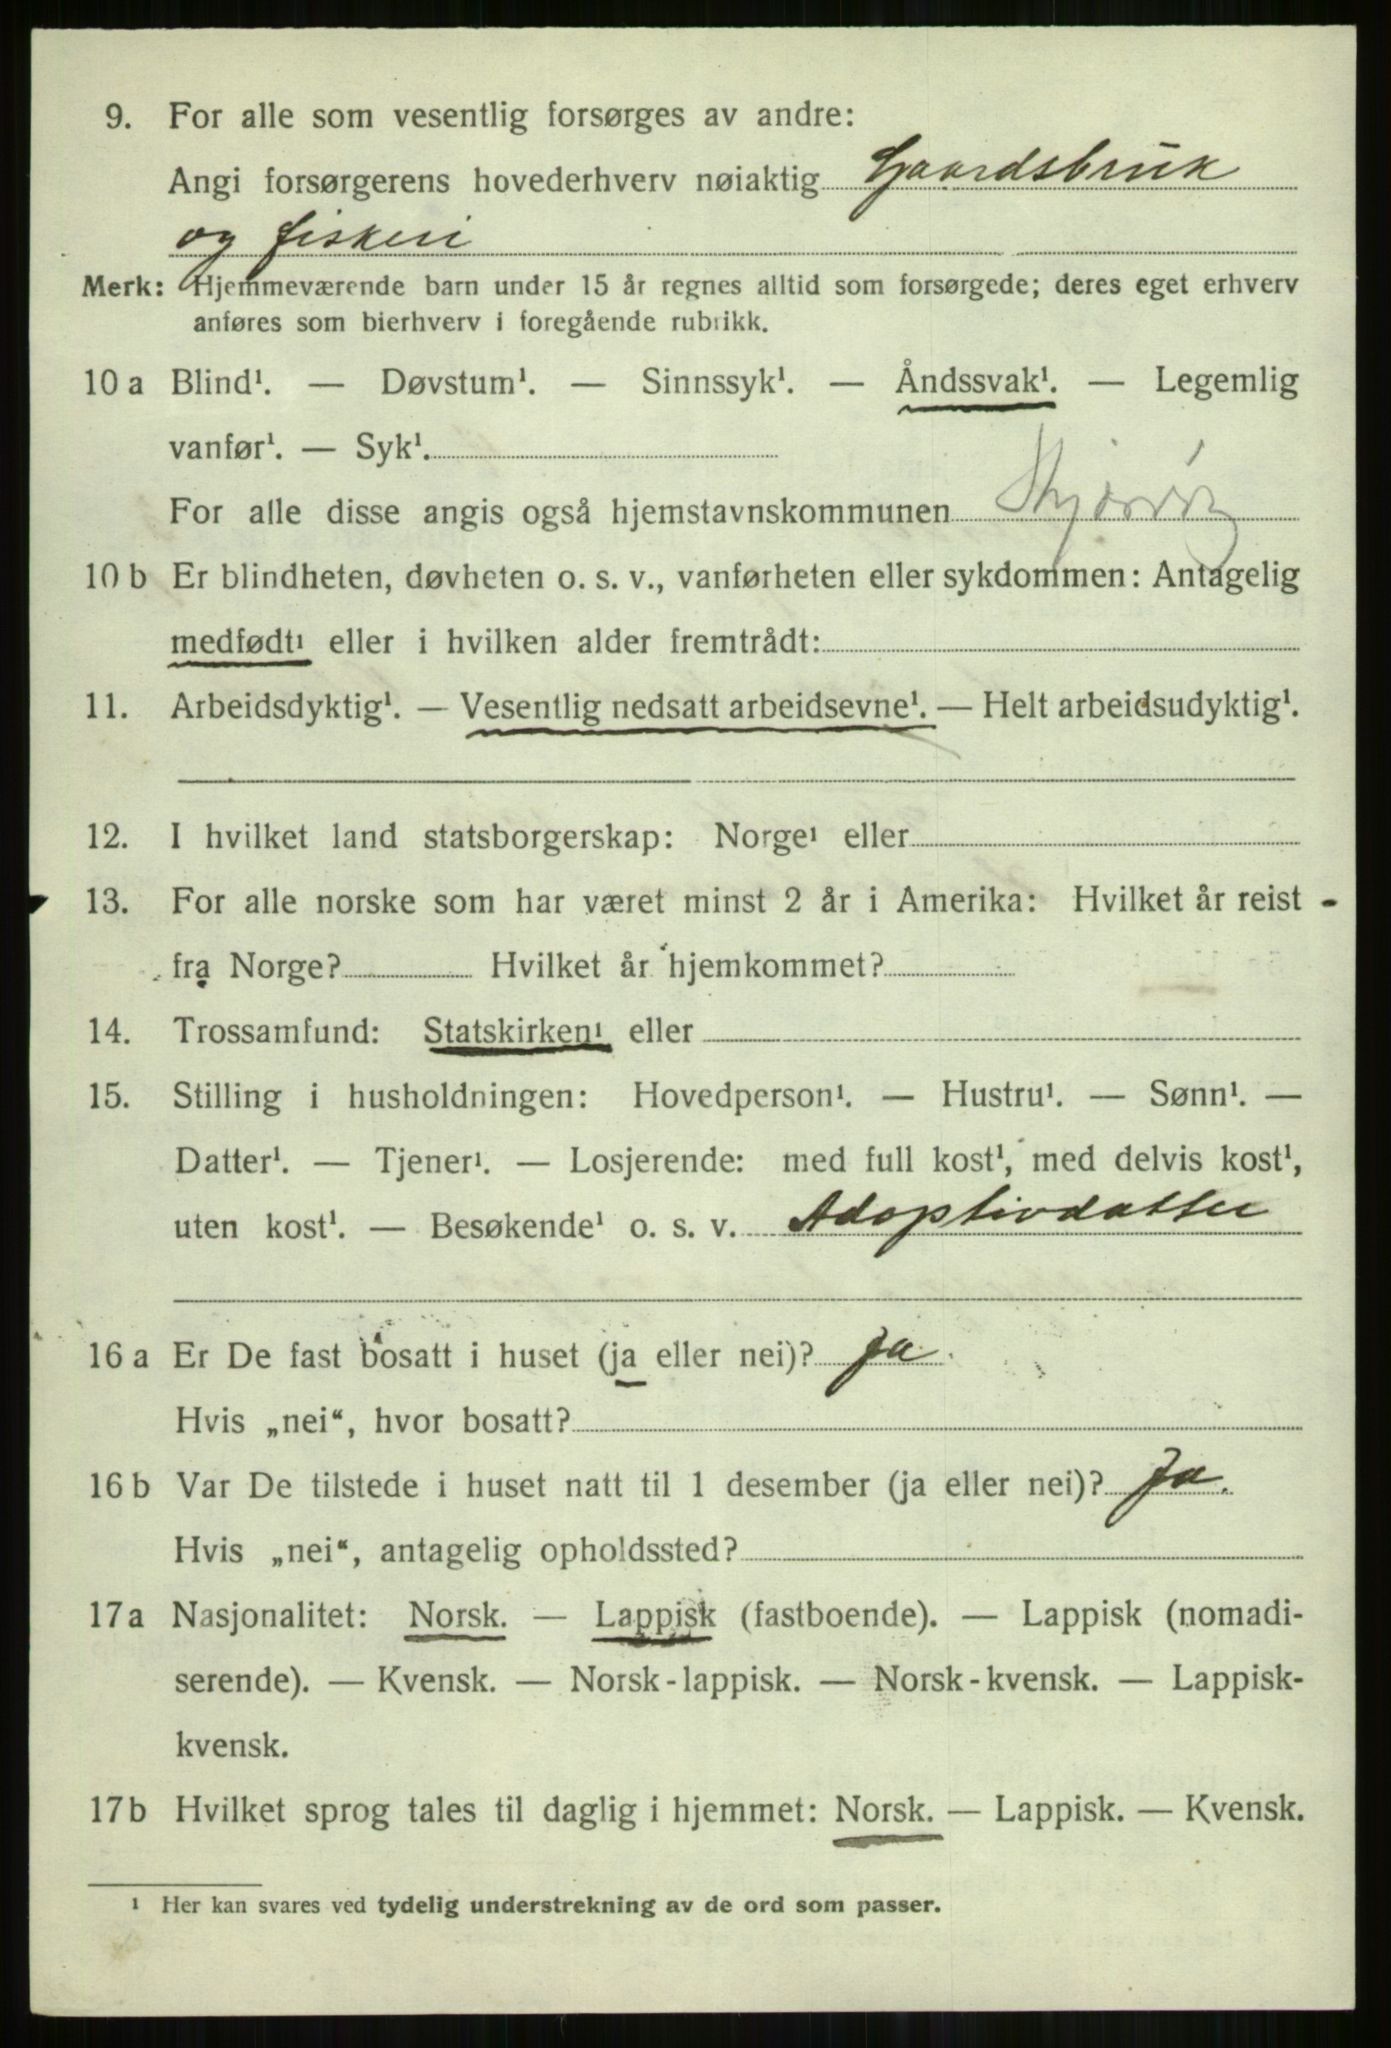 9. For alle som vesentlig forsørges av andre:
Angi forsørgerens hovederhverv nøiaktig Gaardsbruk
og fiskeri
Merk: Hjemmeværende barn under 15 år regnes alltid som forsørgede; deres eget erhverv
anføres som bierhverv i foregående rubrikk.
10 a Blind¹. — Døvstum¹. — Sinnssyk¹. — Åndssvak¹. — Legemlig
vanfør¹. — Syk¹.
For alle disse angis også hjemstavnskommunen Skjervøy
10 b Er blindheten, døvheten o. s. v., vanførheten eller sykdommen: Antagelig
medfødt¹ eller i hvilken alder fremtrådt:
11. Arbeidsdyktig¹. — Vesentlig nedsatt arbeidsevne¹. — Helt arbeidsudyktig¹.
12. I hvilket land statsborgerskap: Norge¹ eller
13. For alle norske som har været minst 2 år i Amerika: Hvilket år reist
fra Norge? Hvilket år hjemkommet?
14. Trossamfund: Statskirken¹ eller
15. Stilling i husholdningen: Hovedperson¹. — Hustru¹. — Sønn¹. —
Datter¹. — Tjener¹. — Losjerende: med full kost¹, med delvis kost¹,
uten kost¹. — Besøkende¹ o. s. v. Adoptivdatter
16 a Er De fast bosatt i huset (ja eller nei)? Ja.
Hvis „nei“, hvor bosatt?
16 b Var De tilstede i huset natt til 1 desember (ja eller nei)? Ja.
Hvis „nei“, antagelig opholdssted?
17 a Nasjonalitet: Norsk. — Lappisk (fastboende). — Lappisk (nomadi-
serende). — Kvensk. — Norsk-lappisk. — Norsk-kvensk. — Lappisk-
kvensk.
17 b Hvilket sprog tales til daglig i hjemmet: Norsk. — Lappisk. — Kvensk.
¹ Her kan svares ved tydelig understrekning av de ord som passer.